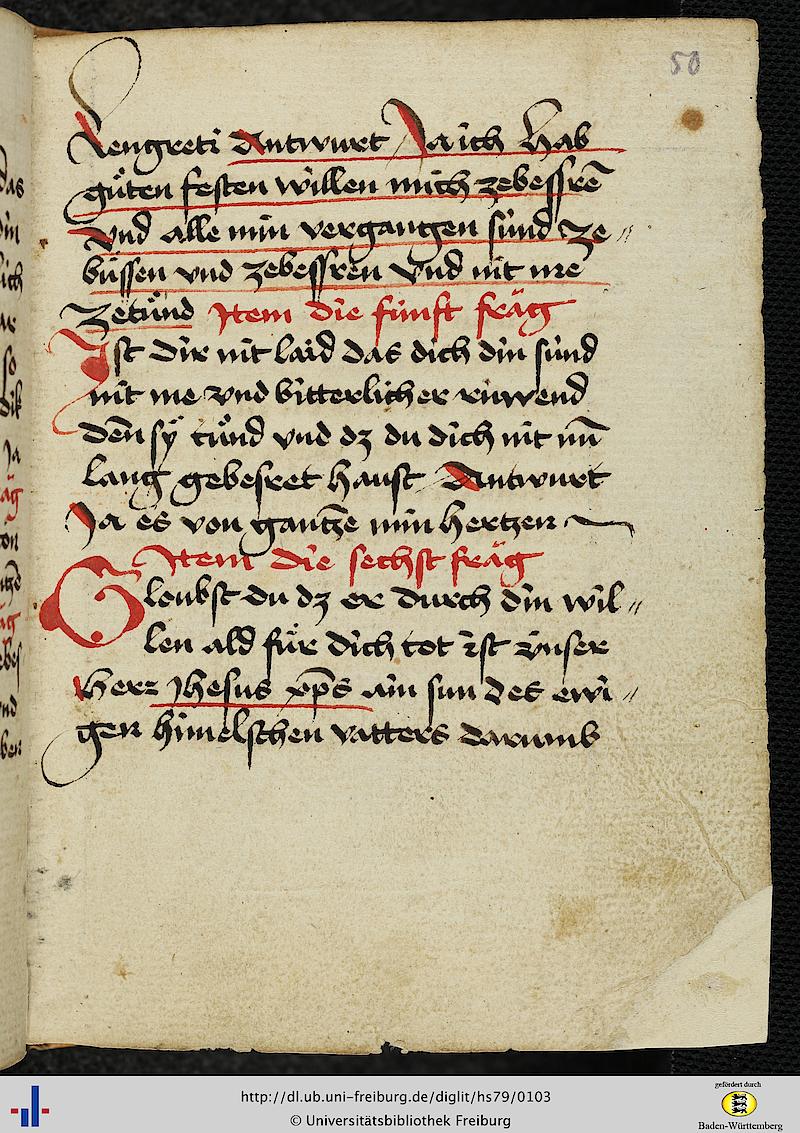 50
Lengreti Antwurt Ja ich hab
gůten festen willen mich zebessrē
Vnd alle min vergangen sünd ze〃
bůssen vnd zebessren Vnd nit mē
Zetůnd Item die fünft fräg
Ist dir nit laid das dich din sünd
nit me vnd bitterlicher rüwend
dēn sÿ tůnd vnd dz du dich nit nūn
lang gebesret haust Antwurt
Ja es von gantze min hertzen
Item die sechst fräg
Gloubst du dz er durch din wil〃
len ald für dich tot ist vnser
Herr Jhesus xp̄s ain sun des ewi〃
gen himelschen vatters darumb
http://dl.ub.uni-freiburg.de/diglit/hs79/0103
© Universitätsbibliothek Freiburg
gefördert durch
Baden-Württemberg